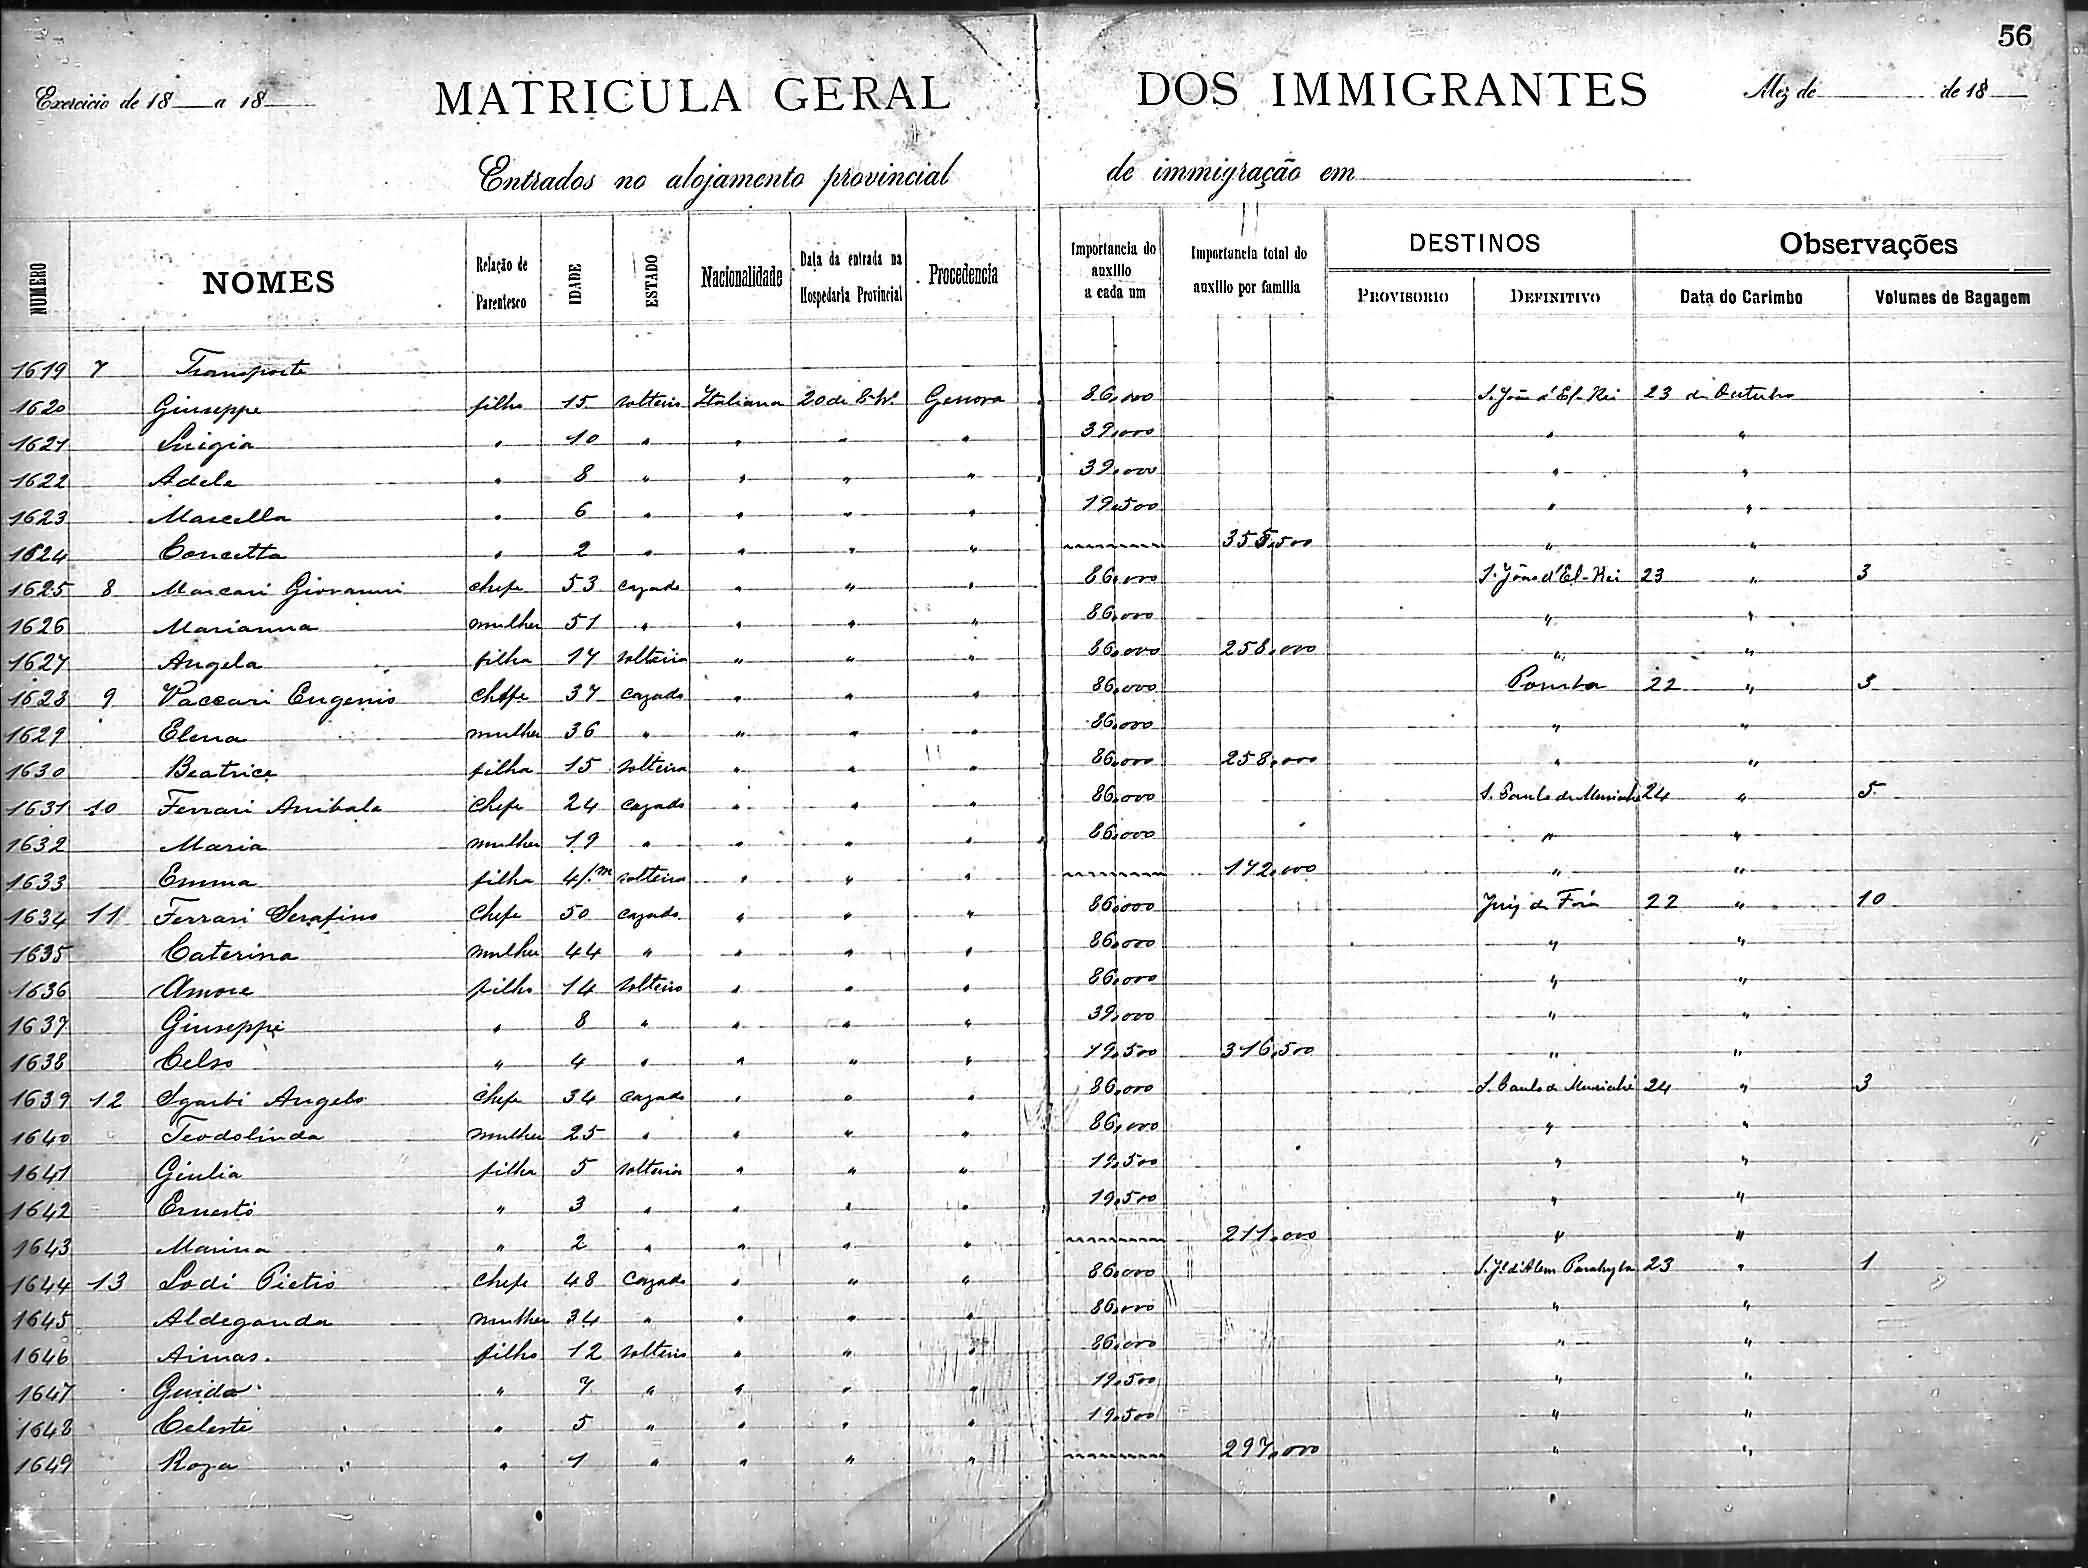 56
Exercicio de 18 a 18 MATRICULA GERAL DOS IMMIGRANTES Mez de de 18
Entrados no alojamento provincial de immigração em
NUMERO NOMES Relação de Parentesco IDADE ESTADO Nacionalidade Data da entrada na Hospedaria Provincial Procedencia Importancia do auxilio a cada um Importancia total do auxilio por familia DESTINOS PROVISORIO DEFINITIVO Observações Data do Carimbo Volumes de Bagagem
1619 7 Transporte
1620 Giuseppe filho 15 solteiro Italiana 20 de 8bro Genova 86,000 S. João d'El-Rei 23 de Outubro
1621 Luigia " 10 " " " " 39,000 " "
1622 Adele " 8 " " " " 39,000 " "
1623 Marcella " 6 " " " " 19,500 " "
1624 Concetta " 2 " " " " 355,500 " "
1625 8 Marcari Giovanni chefe 53 cazado " " " 86,000 S. João d'El-Rei 23 " 3
1626 Marianna mulher 51 " " " " 86,000 " "
1627 Angela filha 17 solteira " " " 86,000 258,000 " "
1628 9 Vaccari Eugenio chefe 37 cazado " " " 86,000 Pomba 22 " 3
1629 Elena mulher 36 " " " " 86,000 " "
1630 Beatrice filha 15 solteira " " " 86,000 258,000 " "
1631 10 Ferrari Anibale chefe 24 cazado " " " 86,000 S. Paulo de Muriahé 24 " 5
1632 Maria mulher 19 " " " " 86,000 " "
1633 Emma filha 4/m solteira " " " 172,000 " "
1634 11 Ferrari Serafino chefe 50 cazado " " " 86,000 Juiz de Fóra 22 " 10
1635 Caterina mulher 44 " " " " 86,000 " "
1636 Amore filho 14 solteiro " " " 86,000 " "
1637 Giuseppe " 8 " " " " 39,000 " "
1638 Celso " 4 " " " " 19,500 316,500 " "
1639 12 Sgarbi Angelo chefe 34 cazado " " " 86,000 S. Paulo de Muriahé 24 " 3
1640 Teodolinda mulher 25 " " " " 86,000 " "
1641 Giulia filha 5 solteira " " " 19,500 " "
1642 Ernesto " 3 " " " " 19,500 " "
1643 Marina " 2 " " " " 211,000 " "
1644 13 Lodi Pietro chefe 48 cazado " " " 86,000 S. Jé d'Alem Parahyba 23 " 1
1645 Aldeganda mulher 34 " " " " 86,000 " "
1646 Aimas. filho 12 solteiro " " " 86,000 " "
1647 Guido " 7 " " " " 19,500 " "
1648 Celeste " 5 " " " " 19,500 " "
1649 Roza " 1 " " " " 297,000 " "